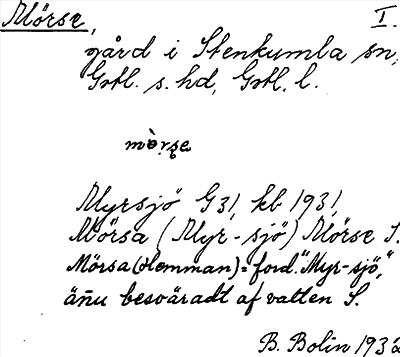 Mörse, I.
gård i Stenkumla sn,
Gotl. s. hd, Gotl. l.
mò̤rsę
Myrsjö G31, kb 1931
Mörsa (Myr-sjö) Mörse S.
Mörsa (Hemman) = ford. "Myr-sjö,"
än̄u besväradt af vatten S.
B. Bolin 1932